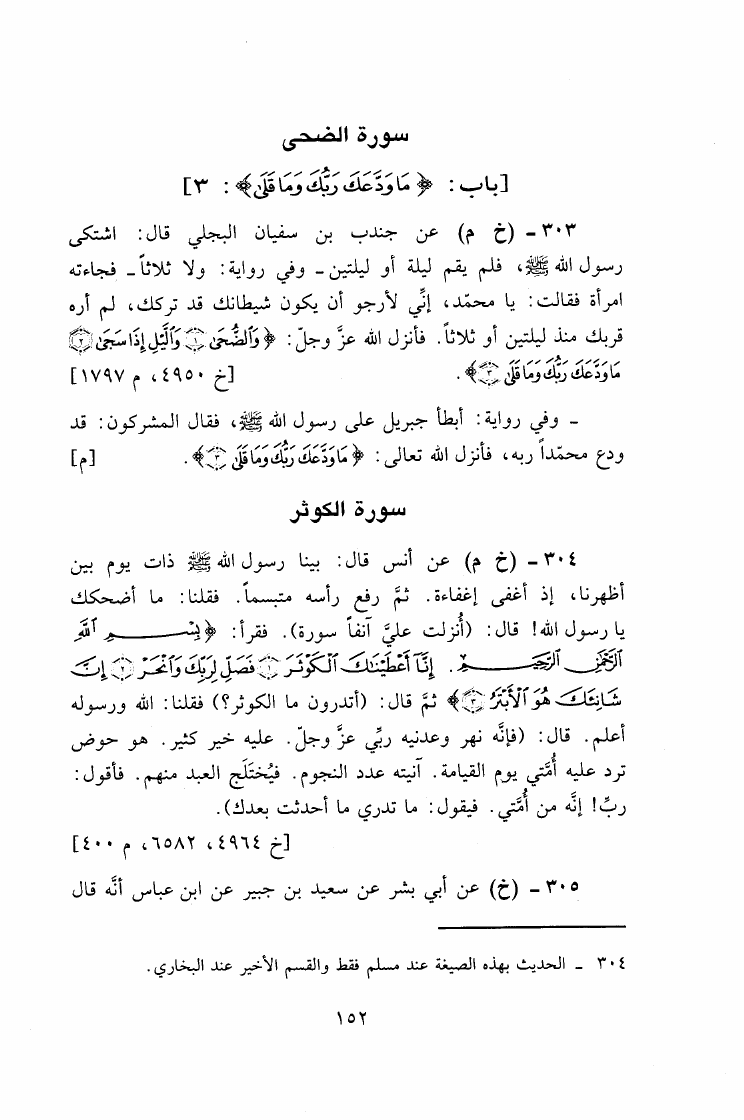 سورة الضحى
[باب: ﴿مَا وَدَّعَكَ رَبُّكَ وَمَا قَلَىٰ﴾: ٣]
٣٠٣ - (خ م) عن جندب بن سفيان البجلي قال: اشتكى
رسول الله ﷺ، فلم يقم ليلة أو ليلتين - وفي رواية: ولا ثلاثاً - فجاءته
امرأة فقالت: يا محمّد، إنِّي لأرجو أن يكون شيطانك قد تركك، لم أره
قربك منذ ليلتين أو ثلاثاً. فأنزل الله عزَّ وجلّ: ﴿وَٱلضُّحَىٰ ۝١ وَٱلَّيْلِ إِذَا سَجَىٰ ۝٢
مَا وَدَّعَكَ رَبُّكَ وَمَا قَلَىٰ ۝٣﴾. [خ ٤٩٥٠، م ١٧٩٧]
- وفي رواية: أبطأ جبريل على رسول الله ﷺ، فقال المشركون: قد
ودع محمّداً ربه، فأنزل الله تعالى: ﴿مَا وَدَّعَكَ رَبُّكَ وَمَا قَلَىٰ ۝٣﴾. [م]
سورة الكوثر
٣٠٤ - (خ م) عن أنس قال: بينا رسول الله ﷺ ذات يوم بين
أظهرنا، إذ أغفى إغفاءة. ثمَّ رفع رأسه متبسماً. فقلنا: ما أضحكك
يا رسول الله! قال: (أُنزلت عليَّ آنفاً سورة). فقرأ: ﴿بِسْمِ ٱللَّهِ
ٱلرَّحْمَٰنِ ٱلرَّحِيمِ. إِنَّآ أَعْطَيْنَٰكَ ٱلْكَوْثَرَ ۝١ فَصَلِّ لِرَبِّكَ وَٱنْحَرْ ۝٢ إِنَّ
شَانِئَكَ هُوَ ٱلْأَبْتَرُ ۝٣﴾ ثمَّ قال: (أتدرون ما الكوثر؟) فقلنا: الله ورسوله
أعلم. قال: (فإنَّه نهر وعدنيه ربِّي عزَّ وجلّ. عليه خير كثير. هو حوض
ترد عليه أُمَّتي يوم القيامة. آنيته عدد النجوم. فيُختلَج العبد منهم. فأقول:
ربِّ! إنَّه من أُمَّتي. فيقول: ما تدري ما أحدثت بعدك).
[خ ٤٩٦٤، ٦٥٨٢، م ٤٠٠]
٣٠٥ - (خ) عن أبي بشر عن سعيد بن جبير عن ابن عباس أنَّه قال
٣٠٤ - الحديث بهذه الصيغة عند مسلم فقط والقسم الأخير عند البخاري.
١٥٢